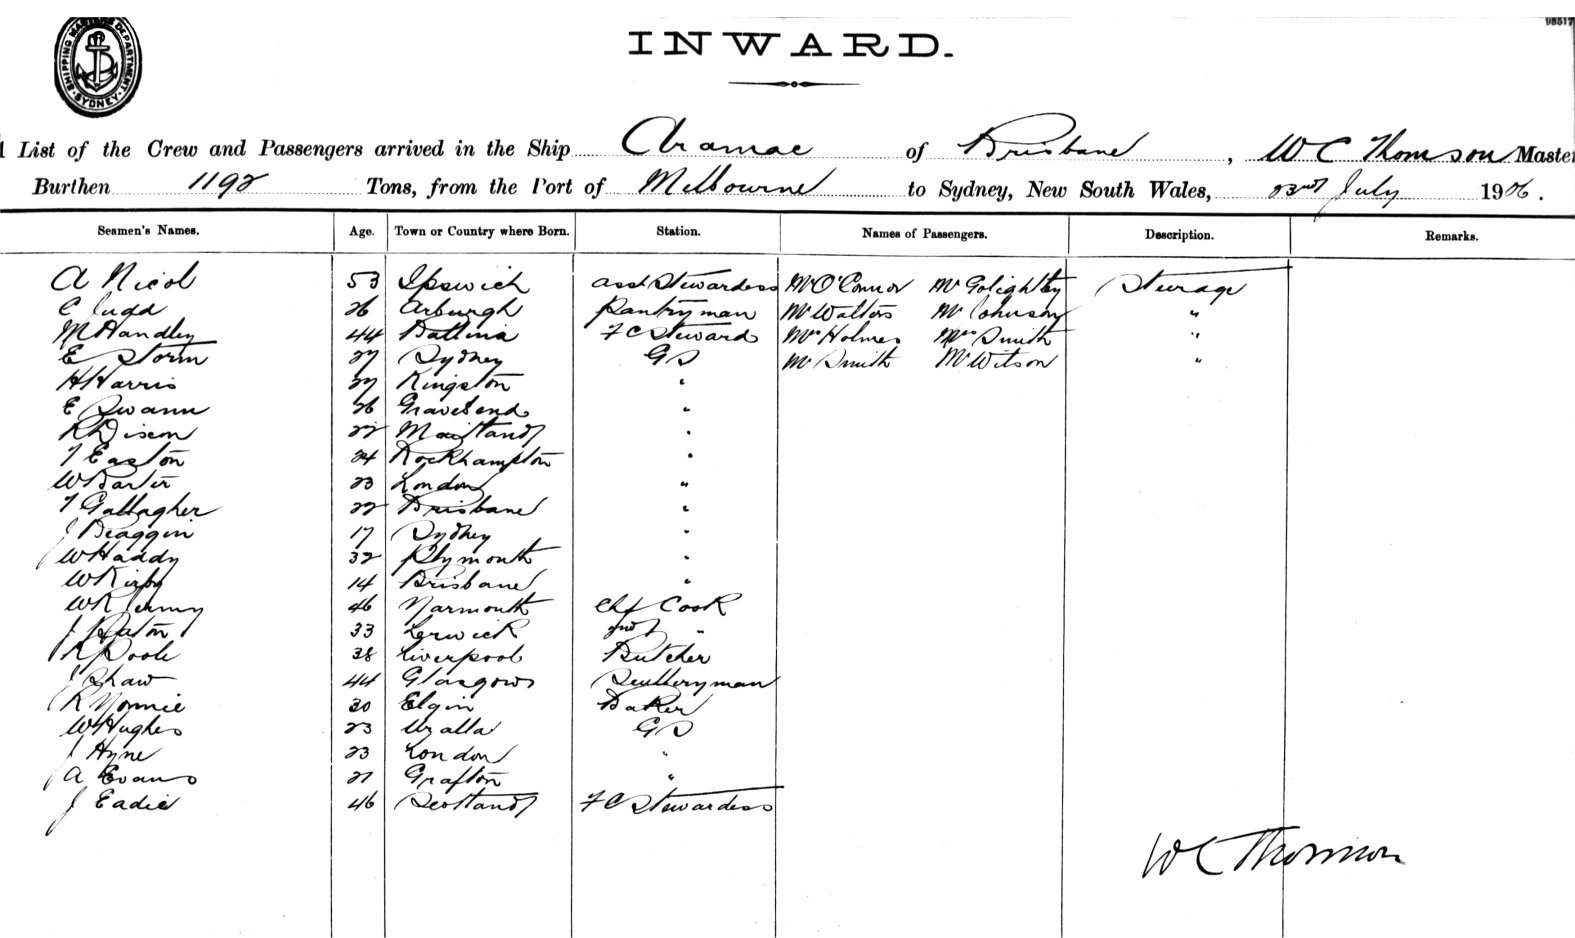 98517
SHIPPING MASTERS DEPARTMENT
SYDNEY
INWARD.
List of the Crew and Passengers arrived in the Ship Aramac of Brisbane, W C Thomson Master
Burthen 1192 Tons, from the Port of Melbourne to Sydney, New South Wales, 23rd July 1906.
Seamen's Names. Age. Town or Country where Born. Station. Names of Passengers. Description. Remarks.
A Nicol 53 Ipswich asst Stewardess Mr O'Connor Mr Golightly Steerage
E Judd 26 Arburgh Pantryman Mr Walters Mr Johnson "
M Handley 44 Ballina F C Steward Mr Holmes Mrs Smith "
E Storm 27 Sydney G S Mr Smith Mr Wilson "
H Harris 27 Kingston "
E Swann 26 Gravesend "
R Dixon 22 Maitland "
T Easton 24 Rockhampton "
W Barter 23 London "
T Gallagher 22 Brisbane "
J 17 Sydney "
W Haddy 32 Plymouth "
W Kirby 14 Brisbane "
W R Jermy 46 Yarmouth Chf Cook
J Paton 33 Lerwick 2nd "
R Poole 38 Liverpool Butcher
J Shaw 44 Glasgow Sculleryman
R Nonnie 30 Elgin Baker
W Hughes 23 Uralla G S
J Hyne 23 London "
A Evans 21 Grafton "
J Eadie 46 Scotland F C Stewardess
W C Thomson